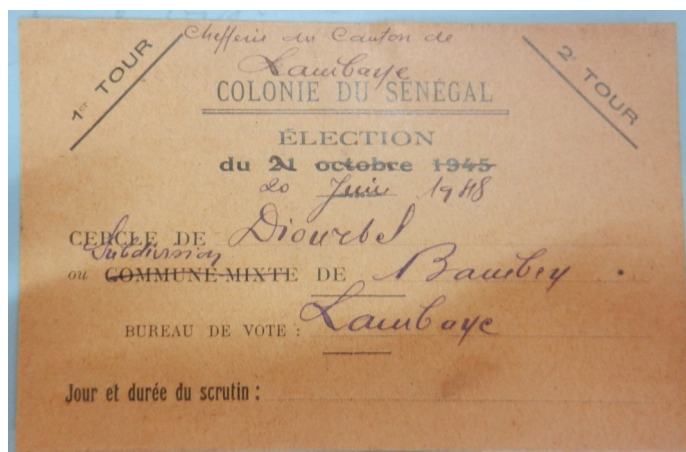 Chefferie du Canton de
Lambaye
1er TOUR
2e TOUR
COLONIE DU SÉNÉGAL
ÉLECTION
du 21 octobre 1945
20 Juin 1948
CERCLE DE Diourbel
Subdivision
ou COMMUNE-MIXTE DE Bambey
BUREAU DE VOTE : Lambaye
Jour et durée du scrutin :